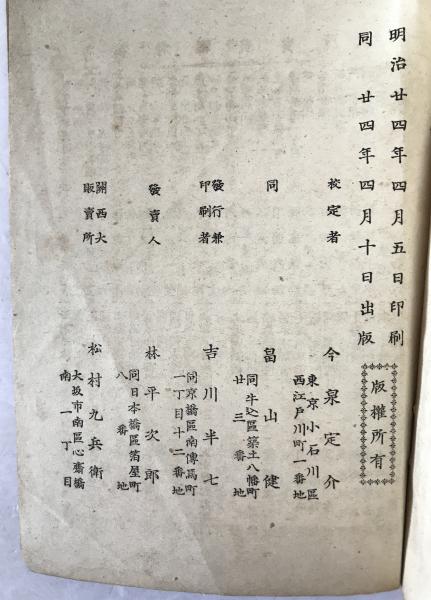 明治廿四年四月五日印刷
同 廿四年四月十日出版
版權所有
校定者 今泉定介
東京小石川區
西江戸川町一番地
同 畠山健
同牛込區築土八幡町
廿三番地
發行兼
印刷者 吉川半七
同京橋區南傳馬町
一丁目十二番地
發賣人 林平次郎
同日本橋區箔屋町
八番地
關西大
販賣所 松村九兵衛
大坂市南區心齋橋
南一丁目